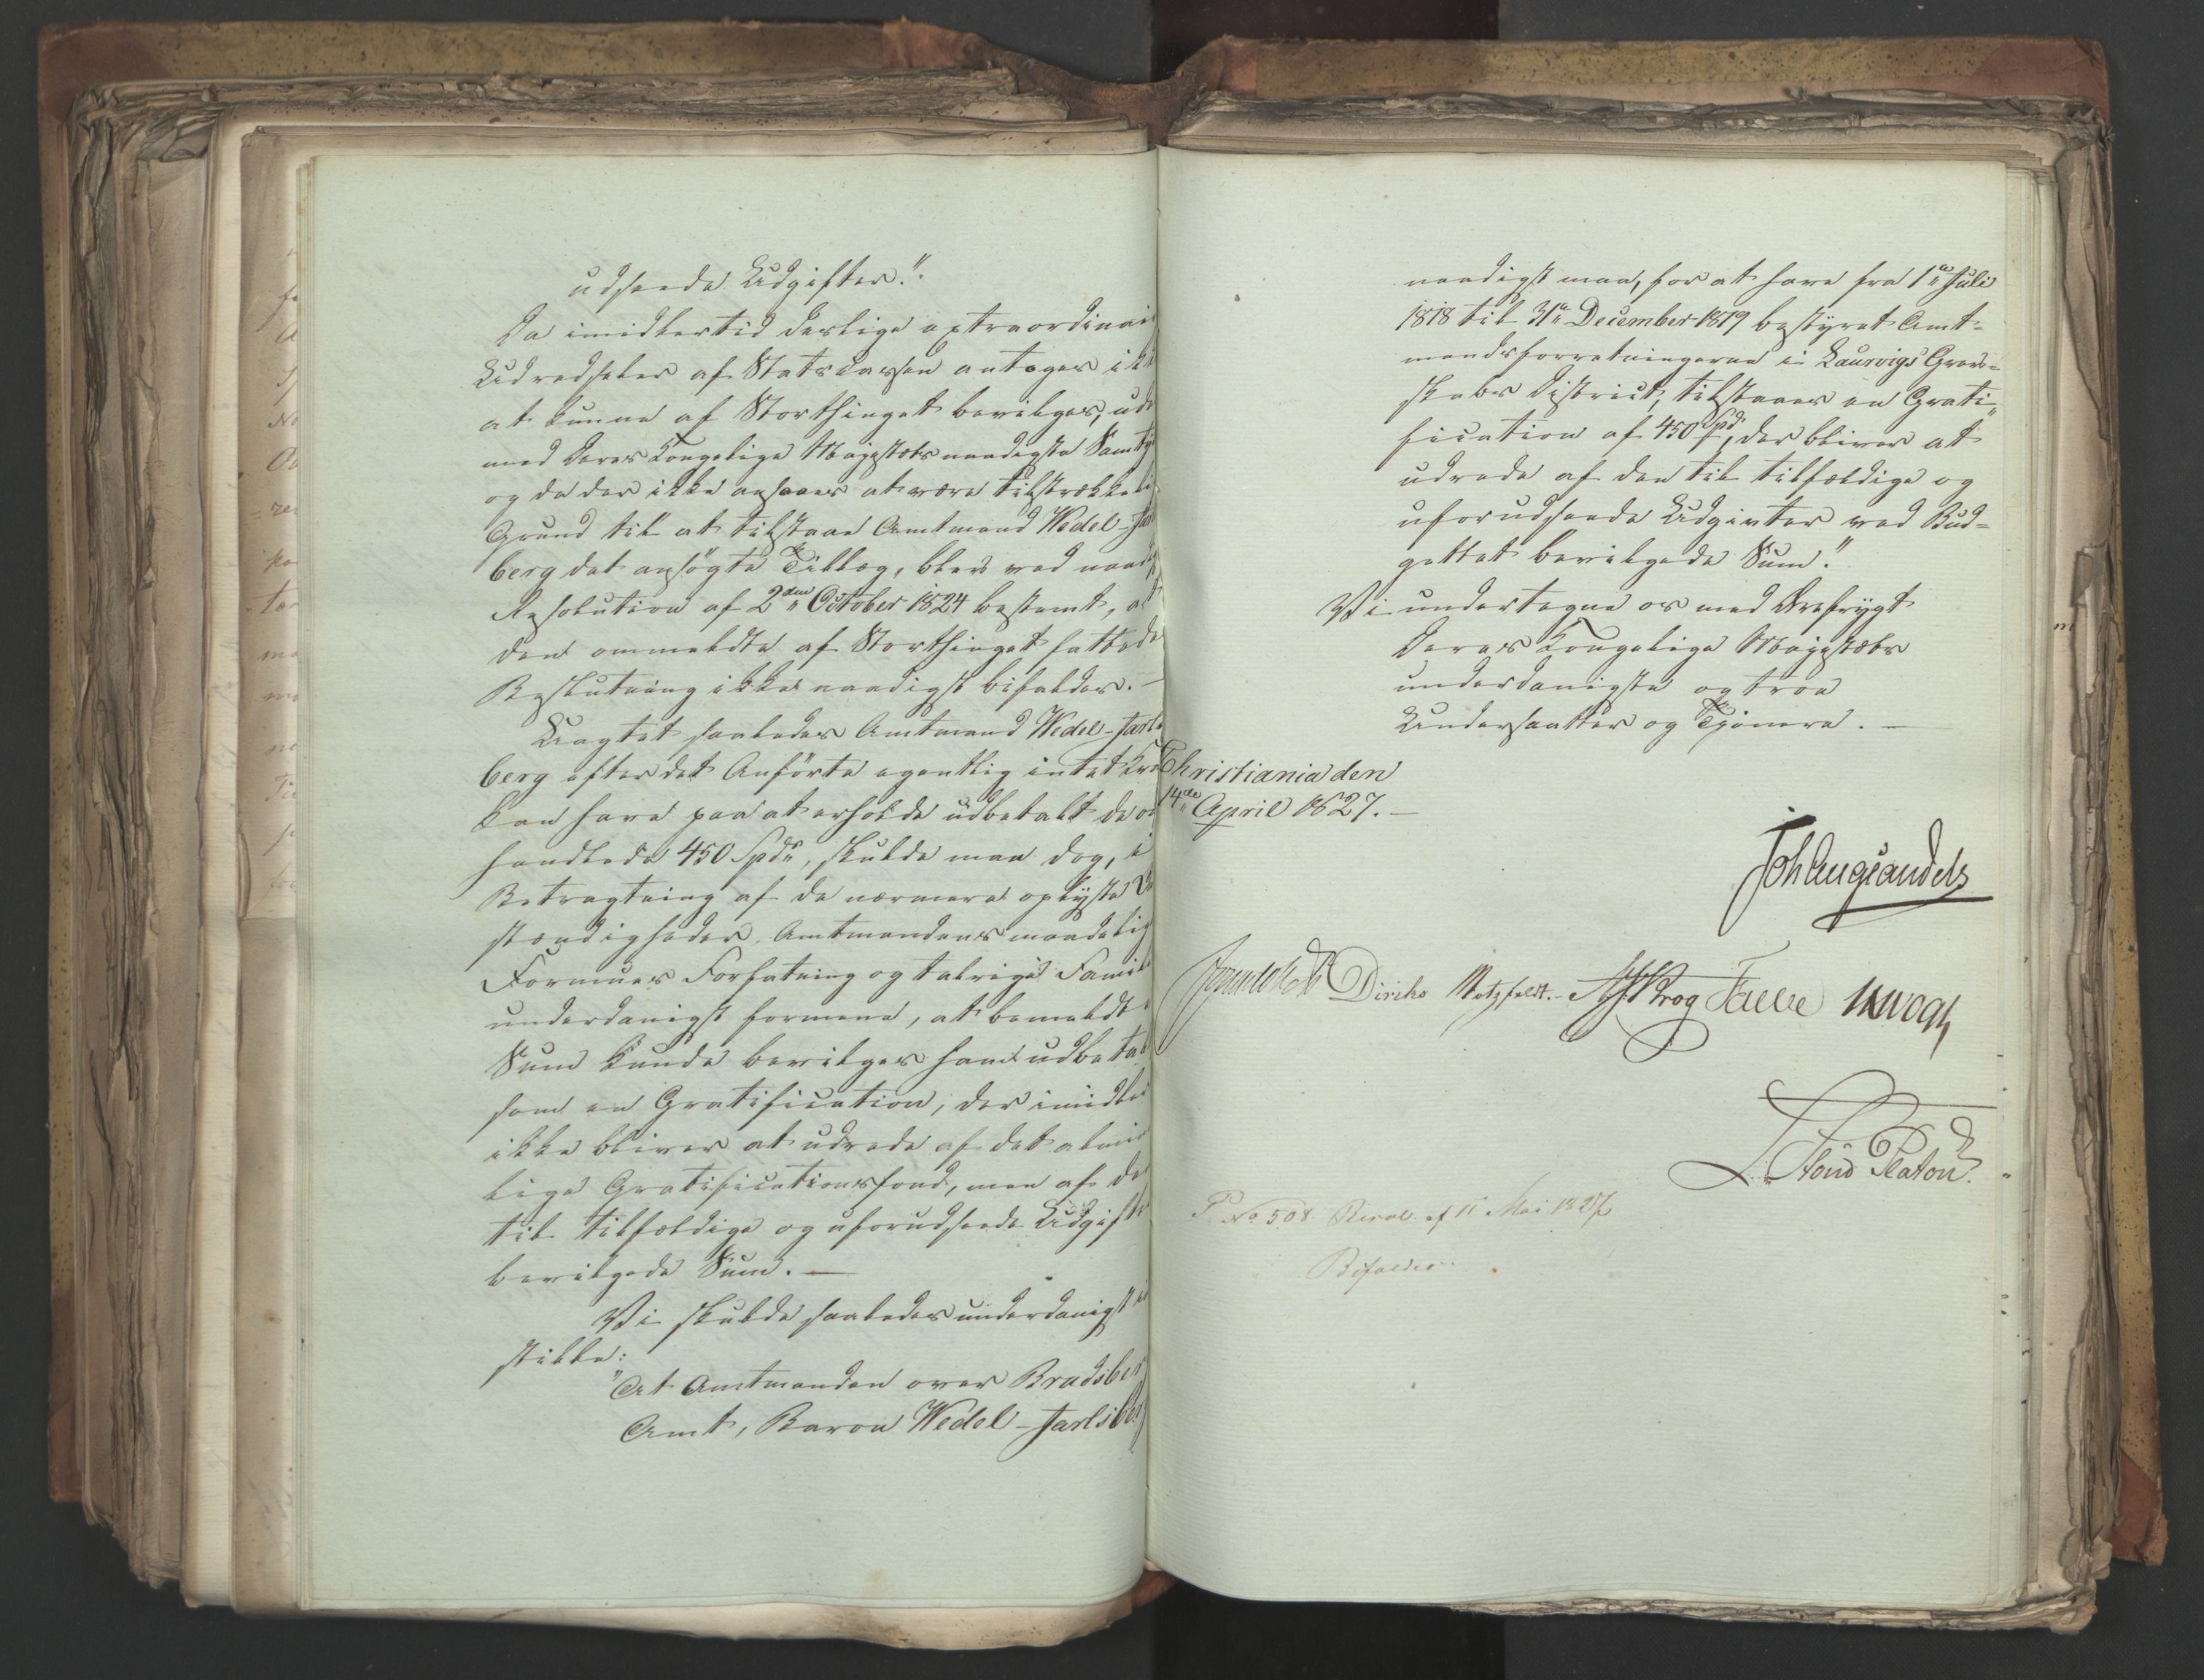 udseede Udgifter."
Da imidlertid deslige extraordinair
Udredseler af Statscassen antages ikk
at kunne af Storthinget bevilges, ude
med Deres Kongelige Majestæts naadigste Samty
og da der ikke ansees at være tilstrækkeli
Grund til at tilstaae Amtmand Wedel-Jarls
berg det ansøgte Tillæg, blev ved naadigst
Resolution af 2den October 1824 bestemt, at
den ommeldte af Storthinget fattede
Beslutning ikke naadigst bifaldes. -
Uagtet saaledes Amtmand Wedel-Jarls
berg efter det Anførte egentlig intet Kra
kan have paa at erholde udbetalt de om
handlede 450 Spdr, skulde man dog, i
Betragtning af de nærmere oplyste Om
stændigheder, Amtmandens maadelig
Formues Forfatning og talrige Famili
underdanigst formene, at bemeldte
Sum kunde bevilges ham udbetal
som en Gratification, der imidler
ikke bliver at udrede af det almin
lige Gratificationsfond, men af de
til tilfældige og uforudseede Udgifte
bevilgede Sum. -
Vi skulde saaledes underdanigst in
stille:
"At Amtmanden over Bradsberg
Amt, Baron Wedel-Jarlsberg
naadigst maa, for at have fra 1de Juli
1818 til 31te December 1819 bestyret Amt-
mandsforretningerne i Laurvigs Grev-
skabs District, tilstaaes en Grati-
fication af 450 Spd, der bliver at
udrede af den til tilfældige og
uforudseede Udgivter ved Bud-
gettet bevilgede Sum."
Vi undertegne os med Ærefrygt
Deres Kongelige Majestæts
underdanigste og troe
Undersaatter og Tjenere. -
Christiania den
14de April 1827. -
Joh Aug Sandels
Jonas Collett Diriks Motzfeldt. - Krog Fasting
L. v. Stoud Platou
P. No 508. Resol. af 11 Mai 1827
Bifaldes